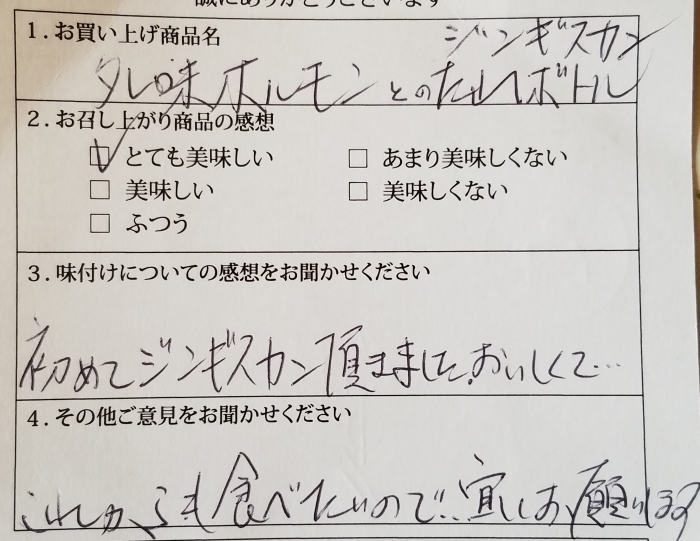 誠にありがとうございます
1.お買い上げ商品名
ジンギスカン
タレ味ホルモンとのたれボトル
2.お召し上がり商品の感想
とても美味しい
□ あまり美味しくない
□ 美味しい
□ 美味しくない
□ ふつう
3.味付けについての感想をお聞かせください
初めてジンギスカン頂きました。おいしくて…
4.その他ご意見をお聞かせください
これからも食べたいので‥宜しくお願いします